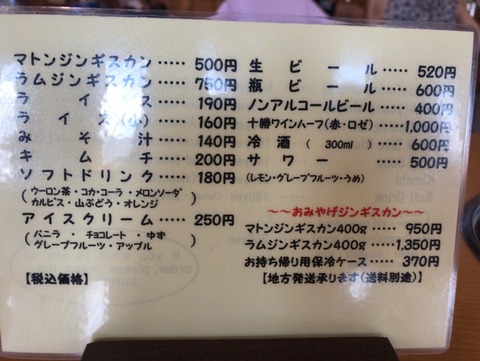 マトンジンギスカン ····· 500円
ラムジンギスカン ····· 750円
ライス ····· 190円
ライス(小) ····· 160円
みそ汁 ····· 140円
キムチ ····· 200円
ソフトドリンク ····· 180円
(ウーロン茶・コカ・コーラ・メロンソーダ
カルピス・山ぶどう・オレンジ)
アイスクリーム ····· 250円
(バニラ・チョコレート・ゆず
グレープフルーツ・アップル)
【税込価格】
生ビール ····· 520円
瓶ビール ····· 600円
ノンアルコールビール ···· 400円
十勝ワインハーフ(赤・ロゼ) ·· 1,000円
冷酒(300ml) ···· 600円
サワー ····· 500円
(レモン・グレープフルーツ・うめ)
~~おみやげジンギスカン~~
マトンジンギスカン400g ··· 950円
ラムジンギスカン400g ···· 1,350円
お持ち帰り用保冷ケース ···· 370円
【地方発送承ります(送料別途)】